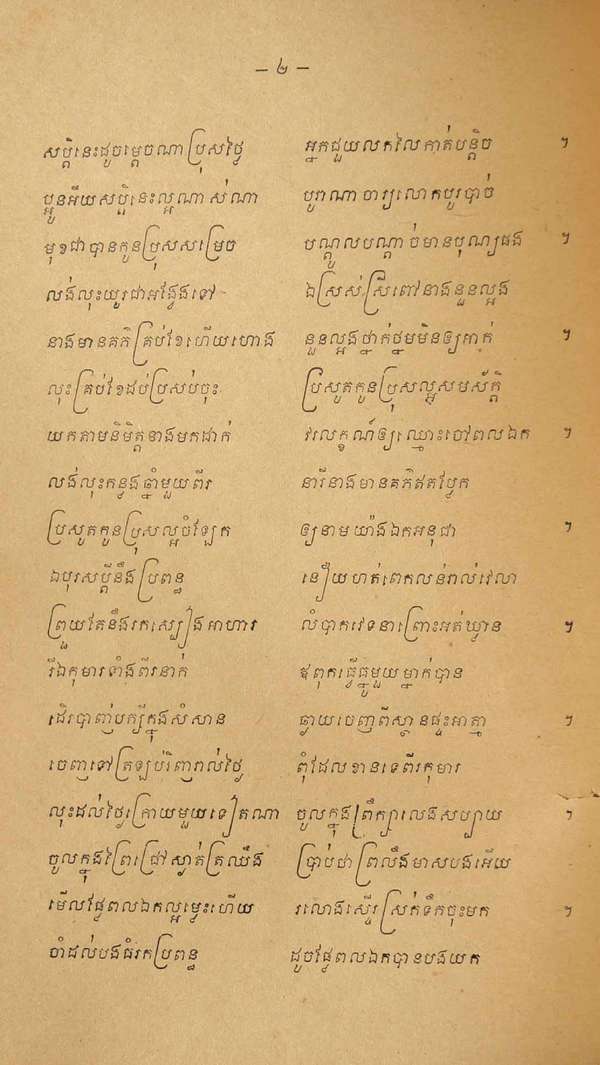 – ២ –
សប្តិនេះដូចម្តេចណាប្រុសថ្ងៃ អ្នកជួយលកលៃកាត់បន្តិច ។
ប្អូនអើយសប្តិនេះល្អណាស់ណា បូរាណាចារ្យលោកបូរបាច់
មុខជាបានកូនប្រុសសម្រេច បណ្តូលបណ្តាច់មានបុណ្យផង ។
លង់លុះយូរជាអង្វែងទៅ ឯស្រស់ស្រីពៅនាងនួនល្អង
នាងមានគភិគ្រប់ខែហើយហោង នួនល្អងថ្នាក់ថ្នមមិនឲ្យអាក់ ។
លុះគ្រប់ខែដប់ប្រសប់ចុះ ប្រសូតកូនប្រុសល្អសមស័ក្តិ
យកតាមនិមិត្តខាងមកដាក់ វរលេក្ខណ៍ឲ្យឈ្មោះចៅពលឯក ។
លង់លុះកន្លងឆ្នាំមួយពីរ នារីនាងមានគភិឥតប្លែក
ប្រសូតកូនប្រុសល្អចំឡែក ឲ្យនាមយ៉ាងឯកអនុជា ។
ឯបុរសប្តីនឹងប្រពន្ធ នឿយហត់ពេកលន់រាល់វេលា
ព្រួយតែនឹងរកស្បៀងអាហារ លំបាកវេទនាព្រោះអត់ឃ្លាន ។
រីឯកុមារទាំងពីរនាក់ ឪពុកធ្វើធ្នូមួយម្នាក់បាន
ដើរបាញ់បក្សីក្នុងសំសាន ឆ្ងាយចេញពីស្ថានផ្ទះអាត្មា ។
ចេញទៅត្រឡប់វិញរាល់ថ្ងៃ ពុំដែលខានទេពីរកុមារ
លុះដល់ថ្ងៃក្រោយមួយទៀតណា ចូលក្នុងព្រឹក្សាលេងសប្បាយ ។
ចូលក្នុងព្រៃជ្រៅស្ងាត់ត្រឈឹង ប្រាប់ថាព្រលឹងមាសបងអើយ
មើលផ្លែពលឯកល្អម្ល៉េះហើយ រលោងស្ទើរស្រក់ទឹកចុះមក ។
ចាំដល់បងធំរកប្រពន្ធ ដូចផ្លែពលឯកបានបងយក